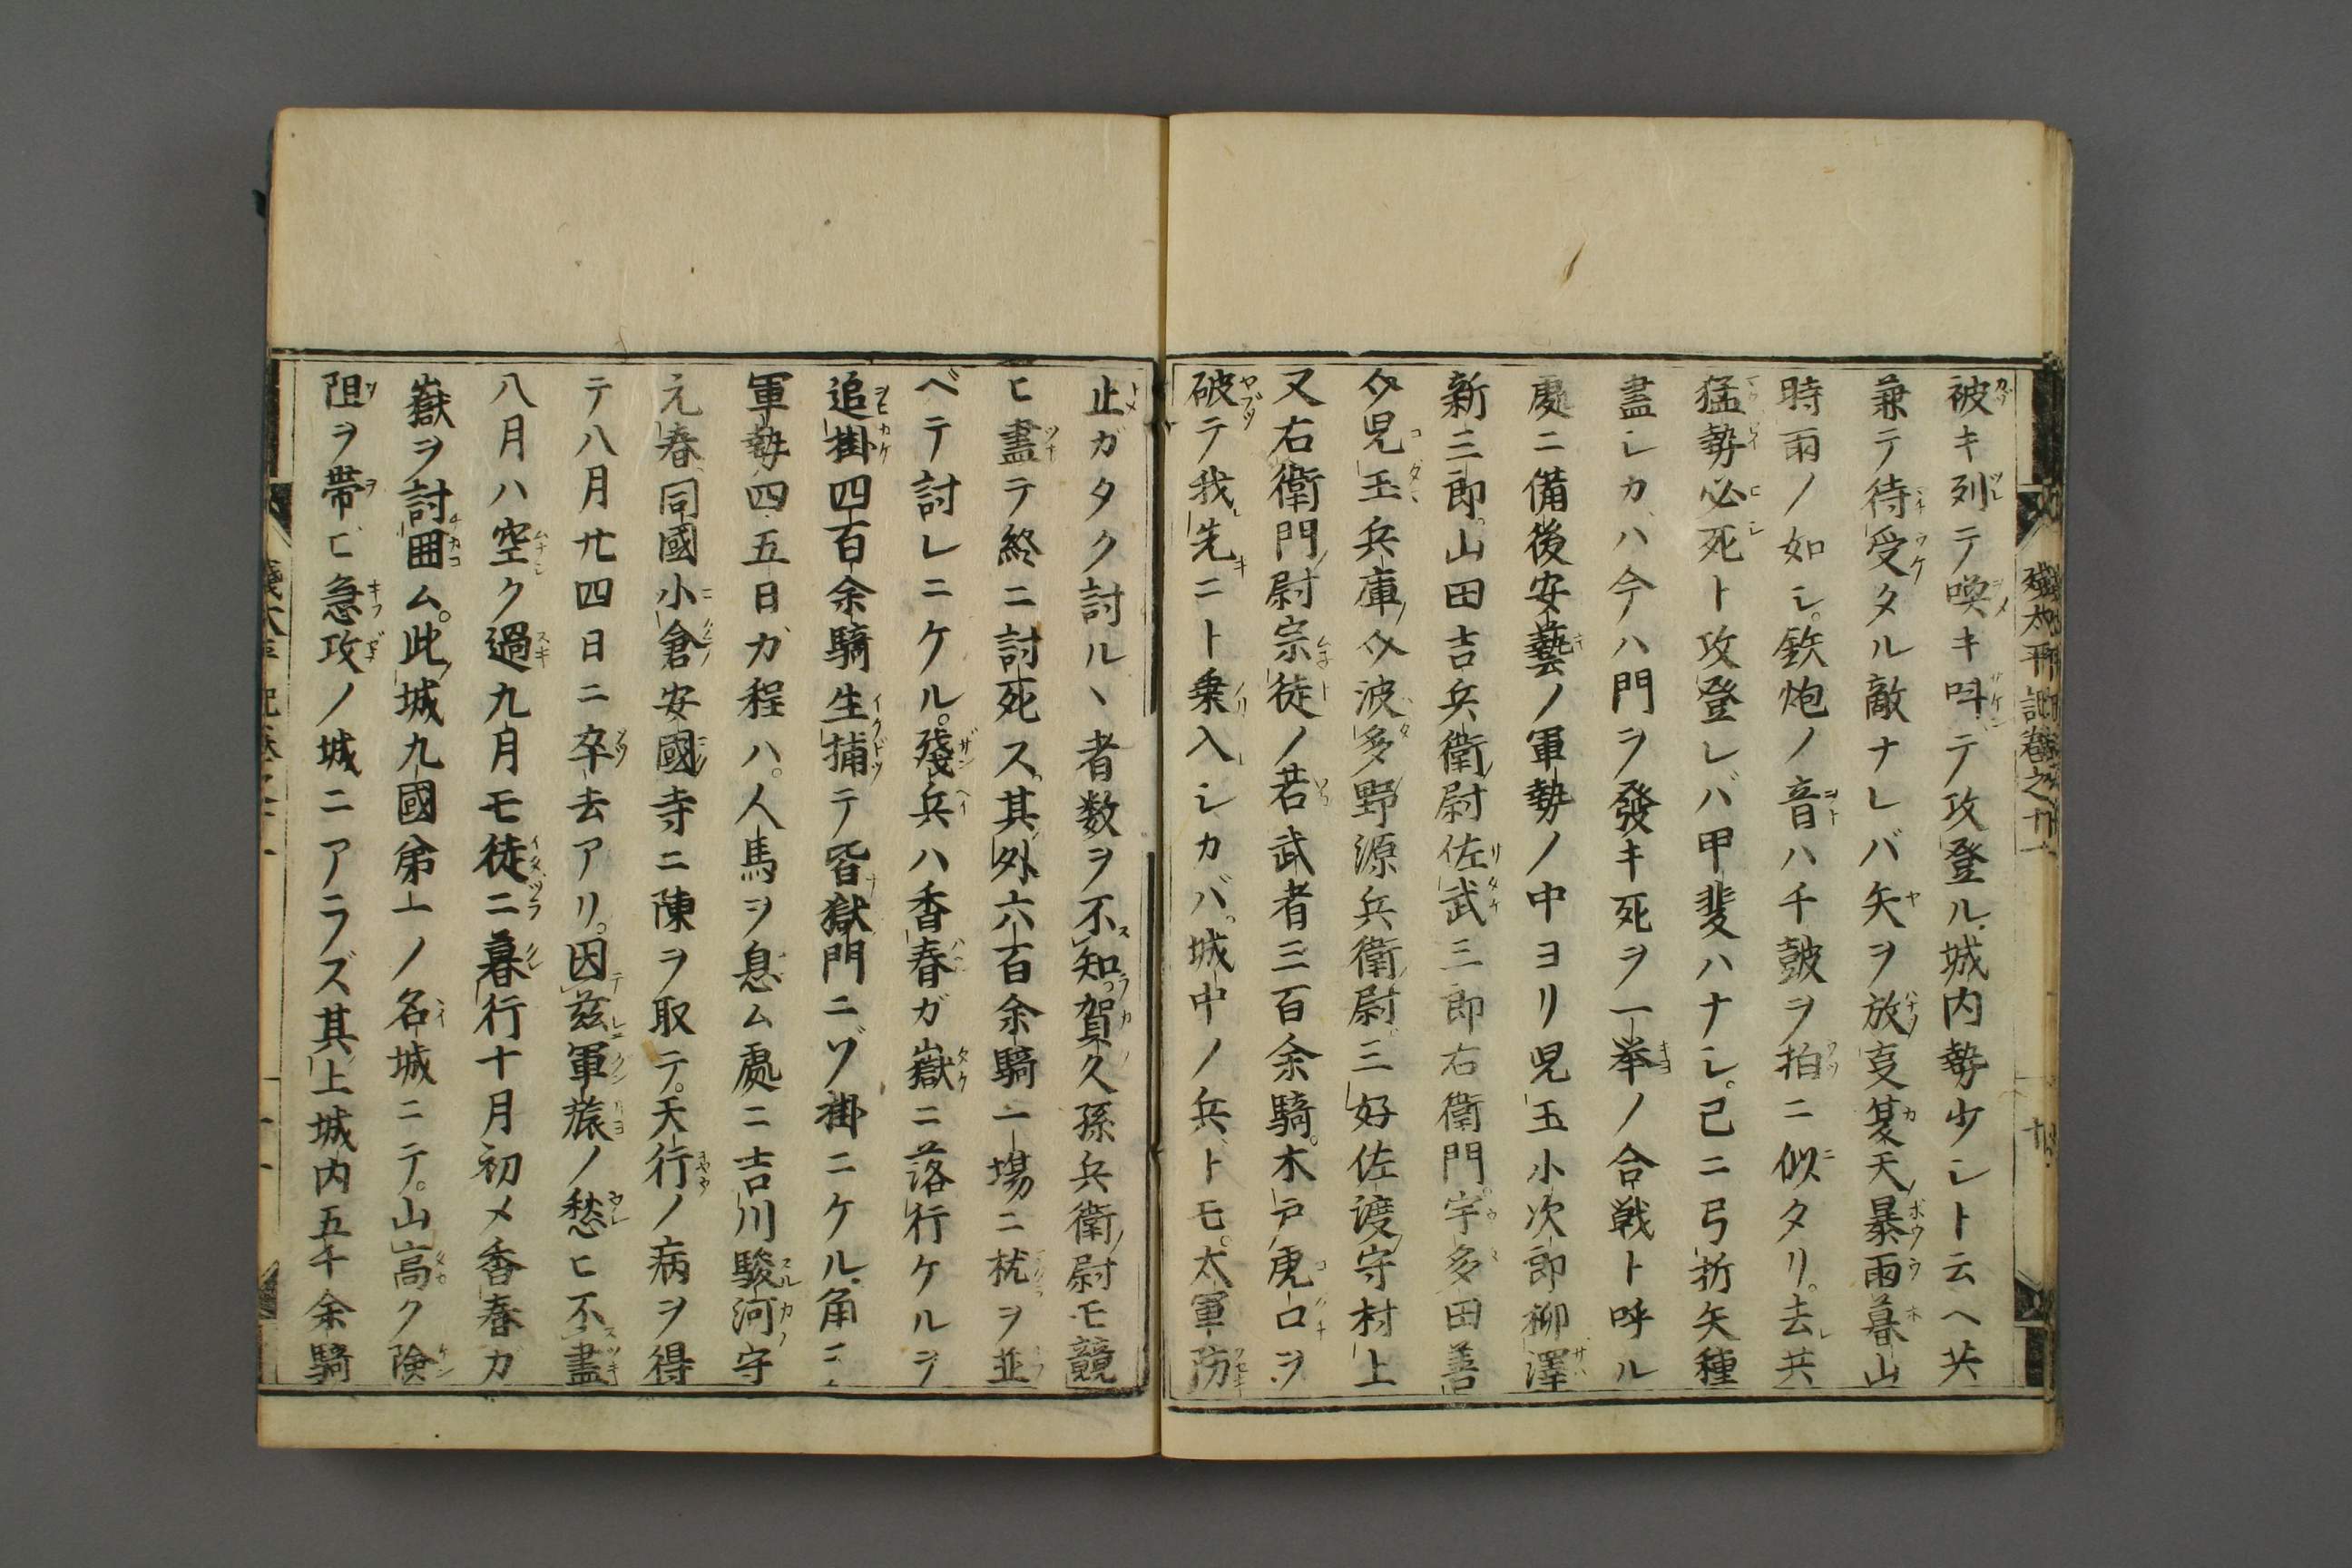 被キ列テ喚キ叫テ攻登ル城内勢少シト云ヘ共
兼テ待受タル敵ナレバ矢ヲ放夏天暴雨暮山
時雨ノ如シ。鉄炮ノ音ハ千皷ヲ拍ニ似タリ。去共
猛勢必死ト攻登レバ甲斐ハナシ。己ニ弓折矢種
盡シカハ今ハ門ヲ發キ死ヲ一挙ノ合戦ト呼ル
處ニ備後安藝ノ軍勢ノ中ヨリ児玉小次郎柳澤
新三郎。山田吉兵衛尉佐武三郎右衛門宇多田善
児玉兵庫波多野源兵衛尉。三好佐渡守村上
又右衛門尉宗徒ノ若武者三百余騎。木戸虎口ヲ
破テ我先ニト乗入シカバ。城中ノ兵トモ。太軍防
止ガタク討ルヽ者数ヲ不知。賀久孫兵衛尉モ競
ヒ盡テ終ニ討死ス。其外六百余騎一場ニ枕ヲ並
ベテ討レニケル。殘兵ハ香春ガ嶽ニ落行ケルヲ
追掛四百余騎生捕テ皆獄門ニゾ掛ニケル。角テ
軍勢四五日ガ程ハ。人馬ヲ息ム處ニ吉川駿河守
元春同國小倉安國寺ニ陳ヲ取テ。天行ノ病ヲ得
テ八月廿四日ニ卒去アリ。因茲軍旅ノ愁ヒ不盡
八月ハ空ク過九月モ徒ニ暮行十月初メ香春ガ
嶽ヲ討囲ム。此城九國第一ノ名城ニテ。山高ク険
阻ヲ帯ヒ急攻ノ城ニアラズ其上城内五千余騎